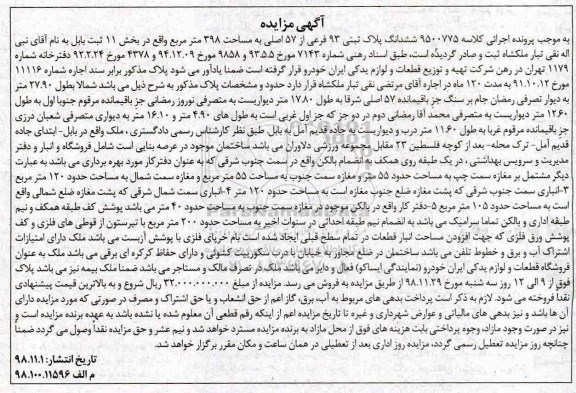 آگهی مزایده
به موجب پرونده اجرائی کلاسه ۹۵۰۰۷۷۵ ششدانگ پلاک ثبتی ۹۳ فرعی از ۵۷ اصلی به مساحت ۳۹۸ متر مربع واقع در بخش ۱۱ ثبت بابل به نام آقای نبی
اله نقی تبار ملکشاه ثبت و صادر گردیده است، طبق اسناد رهنی شماره ۷۱۴۳ مورخ ۹۳.۵.۵ و ۹۸۵۸ مورخ ۹۴.۱۲.۰۹ و ۴۳۷۸ مورخ ۹۲.۲.۲۴ دفترخانه شماره
۱۱۷۹ تهران در رهن شرکت تهیه و توزیع قطعات و لوازم یدکی ایران خودرو قرار گرفته است ضمنا یادآور می شود پلاک مذکور برابر سند اجاره شماره ۱۱۱۱۶
مورخ ۹۱.۱۰.۱۲ به مدت ۱۲۰ ماه در اجاره آقای مرتضی نقی تبار ملکشاه قرار دارد حدود و مشخصات پلاک مذکور به شرح ذیل می باشد شمالا بطول ۲۷.۹۰ متر
به دیوار تصرفی رمضان جام بر سنگ جز باقیمانده ۵۷ اصلی شرقا به طول ۱۷.۸۰ متر دیواریست به متصرفی نوروز رمضانی جز باقیمانده مرقوم جنوبا اول به طول
۱۲.۶۰ متر دیواریست به متصرفی محمد آقا رمضانی دوم در دو جز که جز اول غربی است به طول های ۴.۹۰ متر و ۱۶.۱۰ متر به دیواری متصرفی شعبان درزی
جز باقیمانده مرقوم غربا به طول ۱۱.۶۰ متر درب و دیواریست به جاده قدیم آمل به بابل. طبق نظر کارشناس رسمی دادگستری، ملک واقع در بابل- ابتدای جاده
قدیم آمل- ترک محله- بعد از کوچه فلسطین ۲۳ مقابل مجموعه ورزشی دلاوران می باشد ساختمان موجود در عرصه بنایی است شامل فروشگاه و انبار و دفتر
مدیریت و سرویس بهداشتی، در یک طبقه روی همکف به انضمام بالکن واقع در سمت جنوب شرقی که به عنوان دفترکار مورد بهره برداری می باشد به عبارت
دیگر مشتمل بر مغازه سمت چپ به مساحت حدود ۵۵ متر و مغازه سمت جنوب به مساحت ۵۵ متر مربع و مغازه سمت شمال به مساحت حدود ۱۲۰ متر مربع
۳-انباری سمت جنوب شرقی که پشت مغازه ضلع جنوب مغازه است به مساحت حدود ۱۲۰ متر ۴-انباری سمت شمال شرقی که پشت مغازه ضلع شمالی واقع
است به مساحت حدود ۱۰۵ متر مربع ۵-دفتر کار واقع در بالکن موجود در مغازه سمت جنوب به مساحت حدود ۴۰ متر می باشد پوشش کف طبقه همکف و نیم
طبقه اداری و بالکن تماما سرامیک می باشد به انضمام نیم طبقه احداثی در سنوات اخیر به مساحت حدود ۲۰۰ متر مربع با تیرستون از قوطی های فلزی و کف
پوشش ورق فلزی که جهت افزودن مساحت انبار قطعات در تمام سطح قبلی ایجاد شده است بام خرپای فلزی با پوشش آزبست می باشد ملک دارای امتیازات
اشتراک آب و برق و خطوط تلفن می باشد ساختمان در ضلع مجاور به خیابان با درب سکوریت کشوئی و دارای حفاظ کرکره ای برقی می باشد ملک به عنوان
فروشگاه قطعات و لوازم یدکی ایران خودرو (نمایندگی ایساکو) فعال و دایر می باشد. ملک در تصرف مالک و مستاجر می باشد ضمنا ملک بیمه نیز می باشد پلاک
فوق از ۹ الی ۱۲ روز سه شنبه مورخ ۹۸.۱۱.۲۹ از طریق مزایده به فروش می رسد. مزایده از مبلغ ۳۲.۰۰۰.۰۰۰.۰۰۰ ریال شروع و به بالاترین قیمت پیشنهادی
نقدا فروخته می شود. لازم به ذکر است پرداخت بدهی های مربوط به آب، برق، گاز اعم از حق انشعاب و یا حق اشتراک و مصرف در صورتی که مورد مزایده دارای
آن ها باشد و نیز بدهی های مالیاتی و عوارض شهرداری و غیره تا تاریخ مزایده اعم از اینکه رقم قطعی آن معلوم شده یا نشده باشد به عهده برنده مزایده است و
نیز در صورت وجود مازاد، وجوه پرداختی بابت هزینه های فوق از محل مازاد به برنده مزایده مسترد خواهد شد و نیم عشر و حق مزایده نقدا وصول می گردد ضمنا
چنانچه روز مزایده تعطیل رسمی گردد، مزایده روز اداری بعد از تعطیلی در همان ساعت و مکان مقرر برگزار خواهد شد.
تاریخ انتشار: ۹۸.۱۱.۱
م الف ۹۸.۱۰۰.۱۱۵۹۶